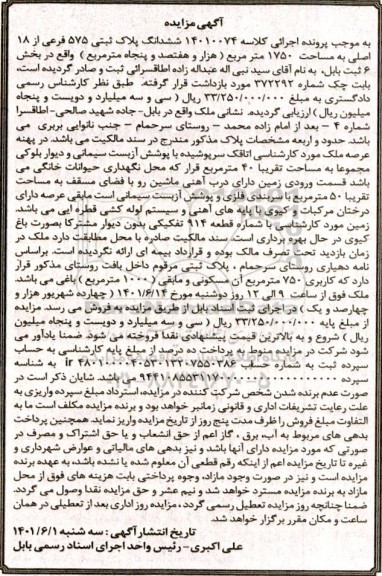 آگهی مزایده
به موجب پرونده اجرائی کلاسه ۱۴۰۱۰۰۷۴ ششدانگ پلاک ثبتی ۵۷۵ فرعی از ۱۸
اصلی به مساحت ۱۷۵۰ متر مربع ( هزار و هفتصد و پنجاه مترمربع ) واقع در بخش
۶ ثبت بابل، به نام آقای سید نبی اله عبداله زاده اطاقسرائی ثبت و صادر گردیده است،
بابت چک شماره ۳۷۲۲۹۲ مورد بازداشت قرار گرفته. طبق نظر کارشناس رسمی
دادگستری به مبلغ ۳۳/۲۵۰/۰۰۰/۰۰۰ ریال ( سی و سه میلیارد و دویست و پنجاه
میلیون ریال ) ارزیابی گردیده. نشانی ملک واقع در بابل- جاده شهید صالحی- اطاقسرا
شماره ۴ - بعد از امام زاده محمد - روستای سرحمام - جنب نانوایی بربری می
باشد. حدود و اربعه مشخصات پلاک مذکور مندرج در سند مالکیت می باشد. در پهنه
عرصه ملک مورد کارشناسی اتاقک سرپوشیده با پوشش آزبست سیمانی و دیوار بلوکی
مجموعا به مساحت تقریبا ۴۰ مترمربع قرار که محل نگهداری حیوانات خانگی می
باشد قسمت ورودی زمین دارای درب آهنی ماشین رو با فضای مسقف به مساحت
تقریبا ۵۰ مترمربع با سربندی فلزی و پوشش آزبست سیمانی است مابقی عرصه دارای
درختان مرکبات و کیوی با پایه های آهنی و سیستم لوله کشی قطره ایی می باشد.
زمین مورد کارشناسی با شماره قطعه ۹۱۴ تفکیکی بدون دیوار مشترکا بصورت باغ
کیوی در حال بهره برداری است. سند مالکیت صادره با محل مطابقت دارد ملک در
زمان بازدید تحت تصرف مالک بوده و قرارداد بیمه ای ارائه نگردیده است. براساس
نامه دهیاری روستای سرحمام، پلاک ثبتی مرقوم داخل بافت روستای مذکور قرار
دارد که کاربری ۷۵۰ مترمربع آن مسکونی و مابقی ( ۱۰۰۰ مترمربع ) باغی می باشد.
ملک فوق از ساعت ۹ الی ۱۲ روز دوشنبه مورخ ۱۴۰۱/۶/۱۴ ( چهارده شهریور هزار و
چهارصد و یک ) در اجرای ثبت اسناد بابل از طریق مزایده به فروش می رسد. مزایده
از مبلغ پایه ۳۳/۲۵۰/۰۰۰/۰۰۰ ریال ( سی و سه میلیارد و دویست و پنجاه میلیون
ریال ) شروع و به بالاترین قیمت پیشنهادی نقدا فروخته می شود. ضمنا یادآور می
شود شرکت در مزایده منوط به پرداخت ده درصد از مبلغ پایه کارشناسی به حساب
سپرده ثبت به شماره حساب
سپرده می باشد. شایان ذکر است در
صورت عدم برنده شدن شخص شرکت کننده در مزایده، استرداد مبلغ سپرده واریزی به
علت رعایت تشریفات اداری و قانونی زمانبر خواهد بود و برنده مزایده مکلف است ما به
التفاوت مبلغ فروش را ظرف مدت پنج روز از تاریخ مزایده واریز نماید. همچنین پرداخت
بدهی های مربوط به آب، برق، گاز اعم از حق انشعاب و یا حق اشتراک و مصرف در
صورتی که مورد مزایده دارای آنها باشد و نیز بدهی های مالیاتی و عوارض شهرداری و
غیره تا تاریخ مزایده اعم از اینکه رقم قطعی آن معلوم شده یا نشده باشد، به عهده برنده
مزایده است و نیز در صورت وجود مازاد، وجوه پرداختی بابت هزینه های فوق از محل
مازاد به برنده مزایده مسترد خواهد شد و نیم عشر و حق مزایده نقدا وصول می گردد.
ضمنا چنانچه روز مزایده تعطیل رسمی گردد، مزایده روز اداری بعد از تعطیلی در همان
ساعت و مکان مقرر برگزار خواهد شد.
تاریخ انتشار آگهی: سه شنبه ۱۴۰۱/۶/۱
علی اکبری- رئیس واحد اجرای اسناد رسمی بابل